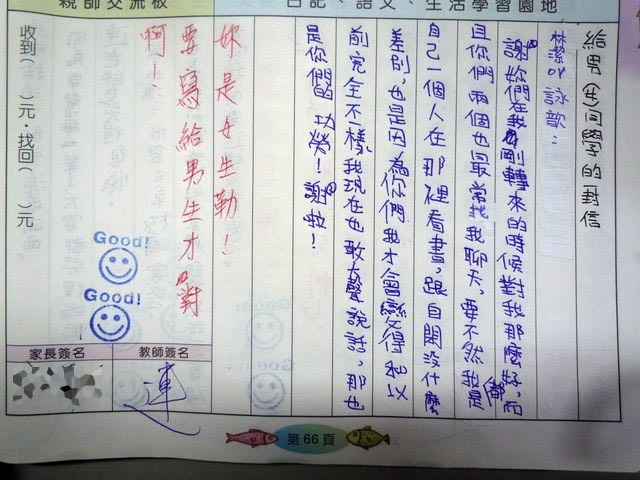 日記、語文、生活學習園地
給男(生)同學的一封信
林潔 詠歆:
謝妳們在我剛轉來的時候對我那麼好,而
且你們兩個也最常找我聊天,要不然我是(都)
自己一個人在那裡看書,跟自閉沒什麼
差別,也是因為你們我才會變得和以
前完全不一樣,我現在也敢大聲說話,那也
是你們的功勞!謝啦!
親師交流板
妳是女生勒!
要寫給男生才對
啊!:
Good!
Good!
收到( )元.找回( )元
教師簽名
連
家長簽名
第66頁